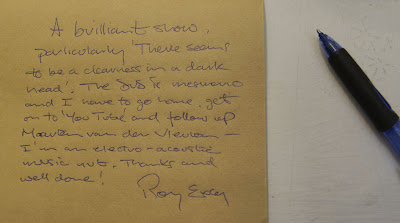 A brilliant show,
particularly 'There seems
to be a clearness in a dark
head'. The DVD is
and I have to go home, get
on to 'YouTube and follow up
Maarten van der Vleuten –
I'm an electro-acoustic
music nut. Thanks and
well done!
Roy Exley